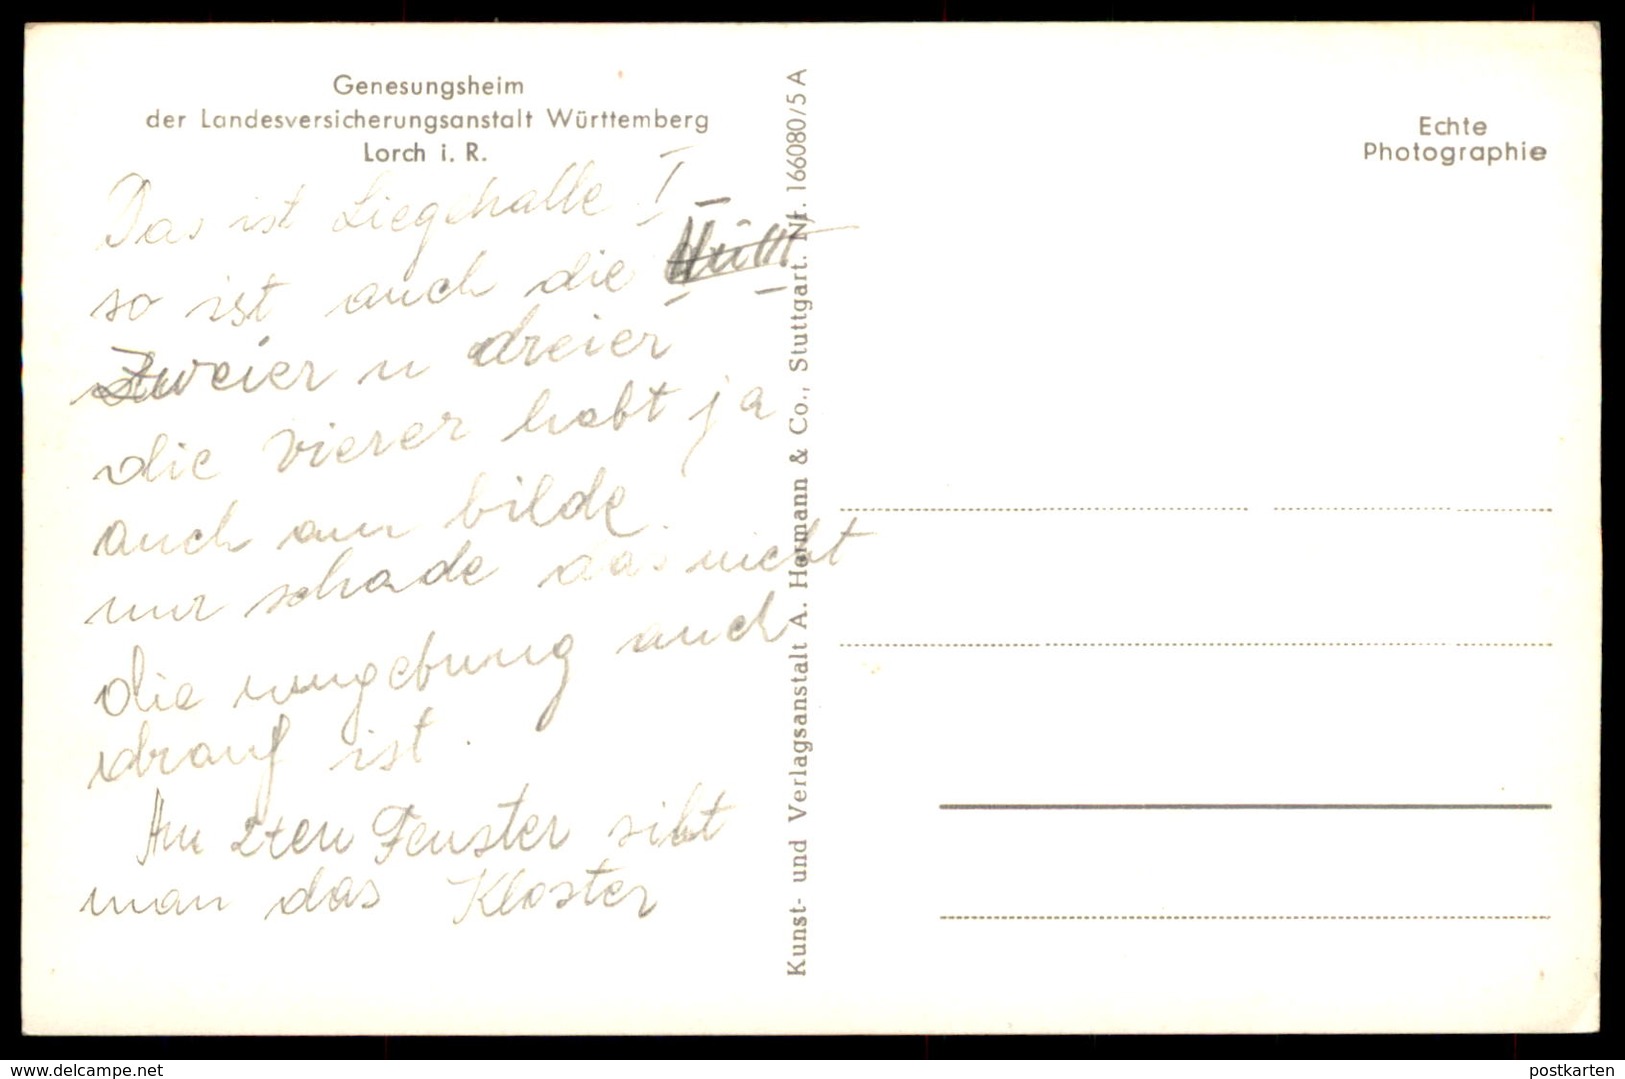 Genesungsheim
der Landesversicherungsanstalt Württemberg
Lorch i. R.
Das ist Liegehalle I
so ist auch die II u III
Zweier u dreier
die vierer habt ja
auch am bilde.
nur schade das nicht
die umgebung auch
drauf ist.
Am 2ten Fenster siht
man das Kloster
Kunst- und Verlagsanstalt A. Hermann & Co., Stuttgart. Nr. 166080/5 A
Echte
Photographie
delcampe.net
postkarten